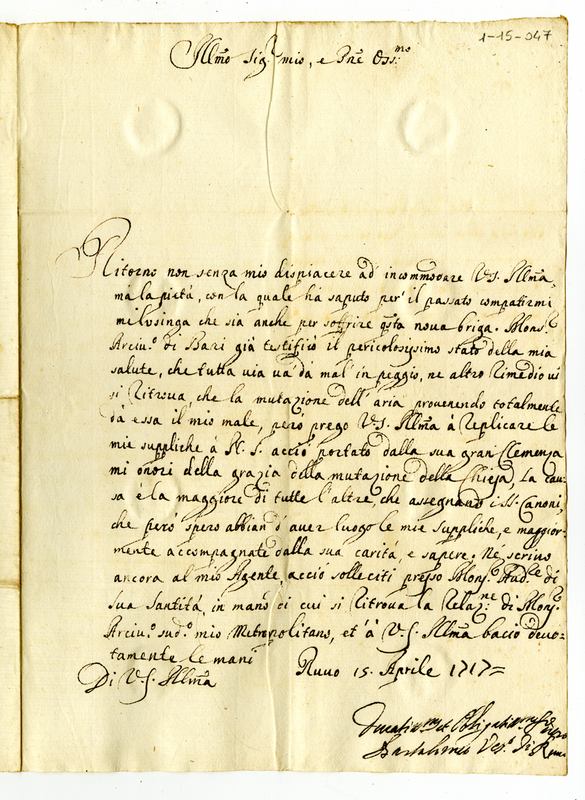 1-15-047
Illmo Sig.r mio, e Pne Oss:mo
Ritorno non senza mio dispiacere ad incommodare V.S. Illma,
mà la pietà, con la quale hà saputo per il passato compatirmi
mi lusinga che sia anche per soffrire qsta nova briga. Mons.r
Arciv.o di Bari già testificò il pericolosissimo stato della mia
salute, che tutta via và dà mal' in peggio, ne altro rimedio vi
si ritrova, che la mutazione dell'aria provenendo totalmente
dà essa il mio male, però prego V.S. Illma à replicare le
mie suppliche à N.S. acciò portato dalla sua gran Clemenza
mi onori della grazia della mutazione della Chiesa, la cau-
sa è la maggiore di tutte l'altre, che assegnano i SS. Canoni,
che però spero abbian d'aver luogo le mie suppliche, e maggior-
mente accompagnate dalla sua carità e sapere. Ne scrivo
ancora al mio Agente, acciò solleciti presso Mons.r Aud.re di
Sua Santità, in mano di cui si ritrova la Relaz.ne di Mons.r
Arciv.o sud.o mio Metropolitano, et à V.S. Illma bacio devo-
tamente le mani
Di V.S. Illma
Ruvo 15. Aprile 1717=
et Obligatis.mo
Bartolomeo Ves.o di Ruvo